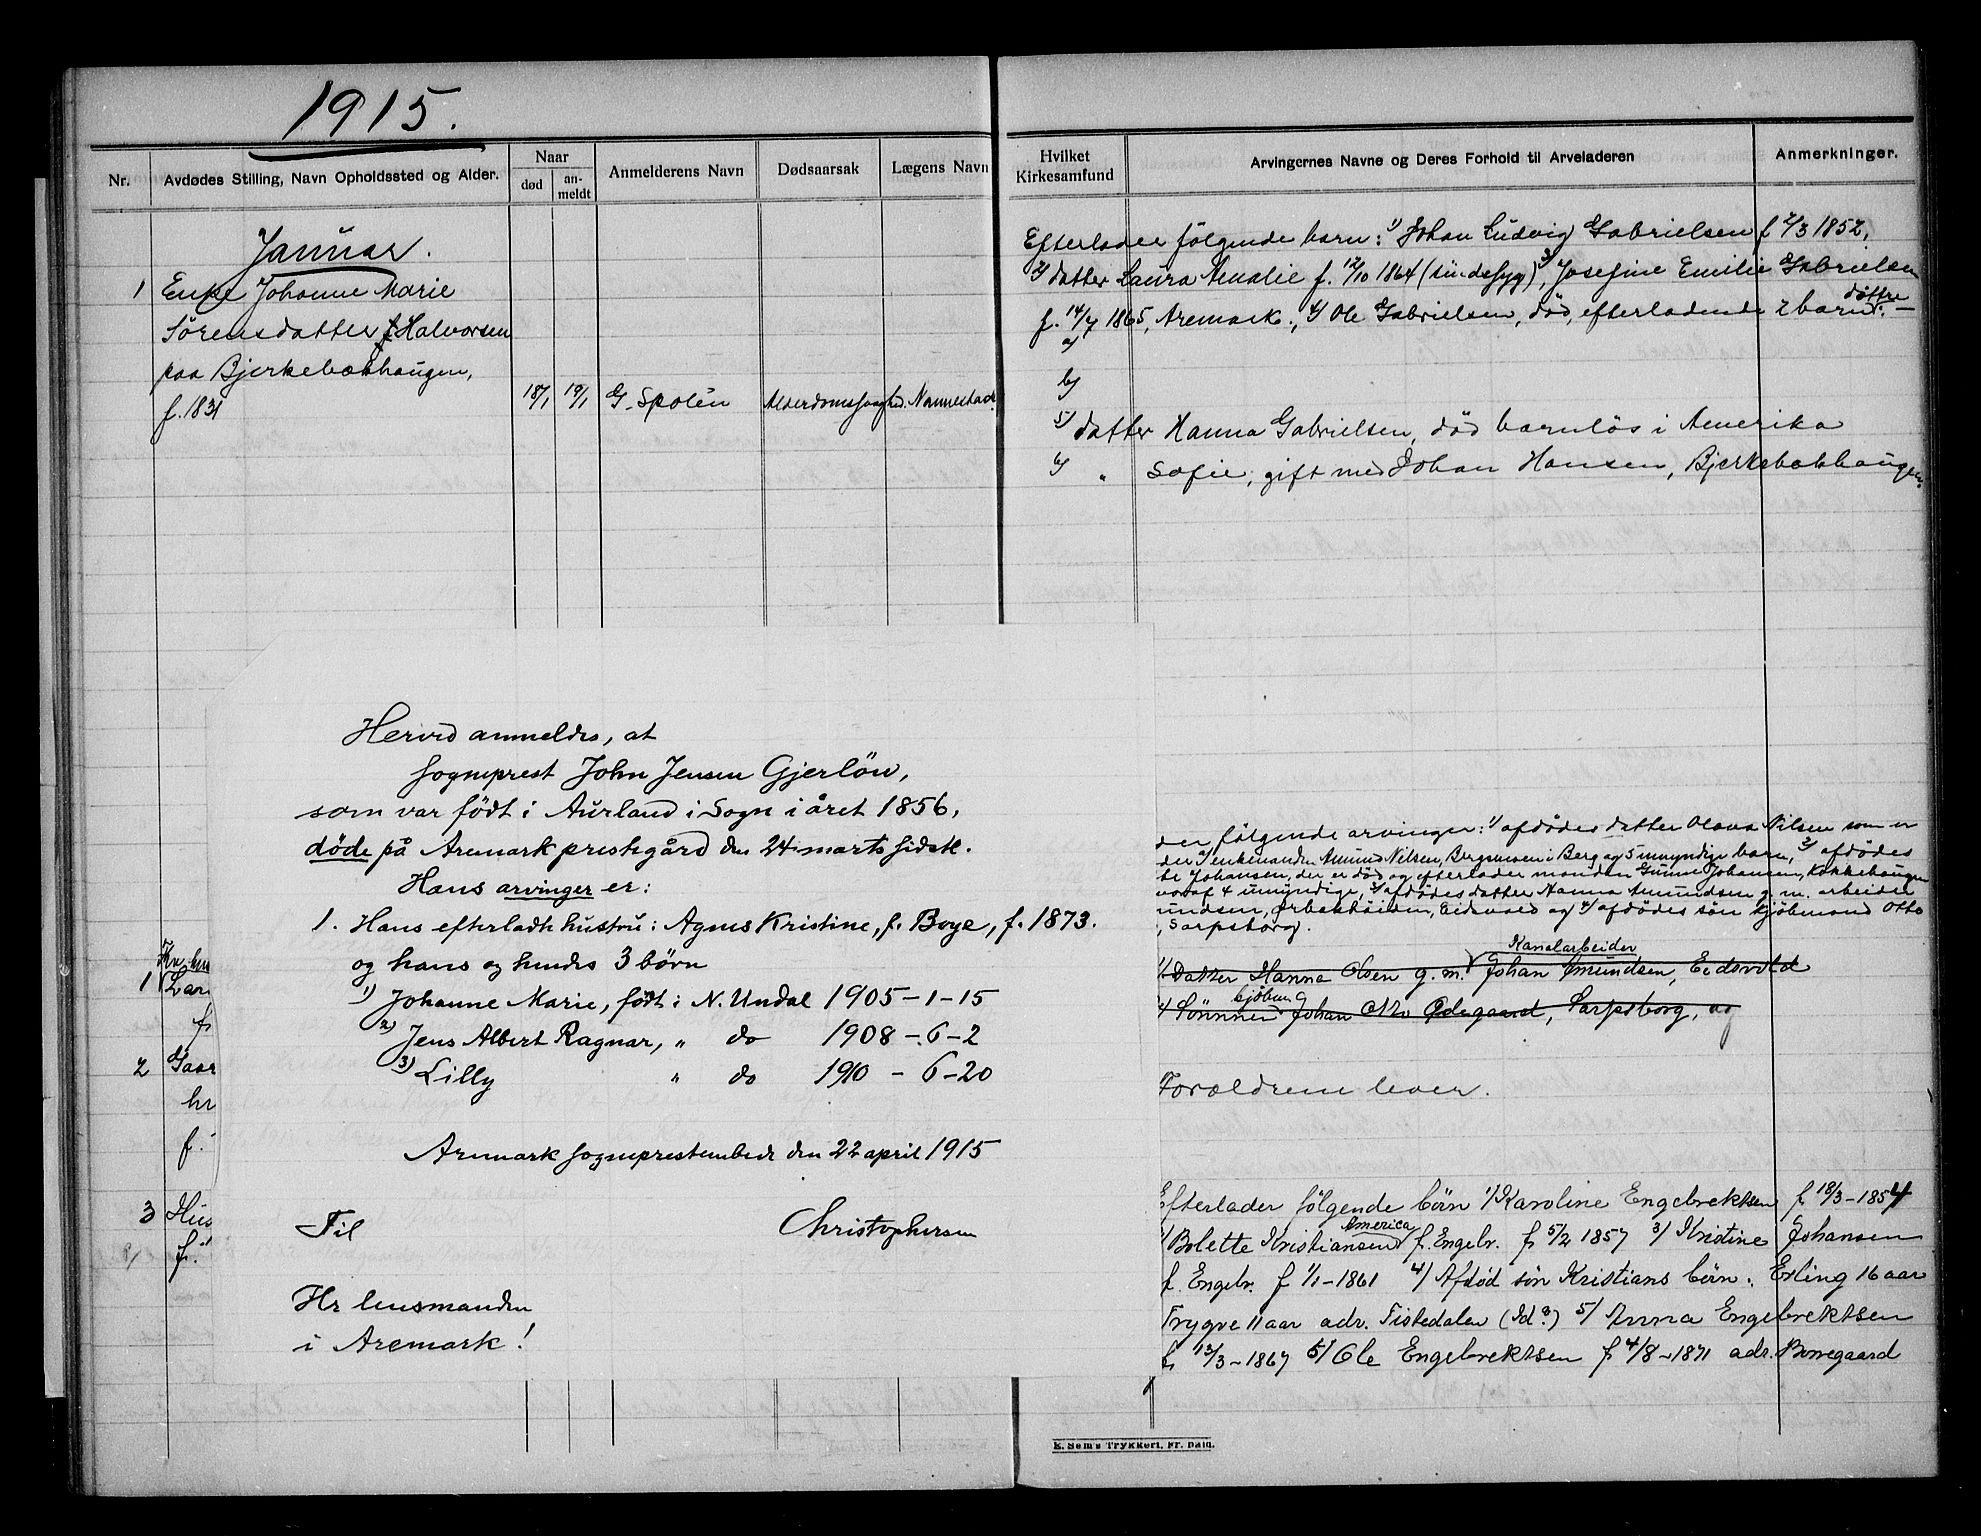 1915.
Nr.
Avdødes Stilling, Navn Opholdssted og Alder.
Naar
død
an-
meldt
Anmelderens Navn
Dødsaarsak
Lægens Navn
Hvilket
Kirkesamfund
Arvingernes Navne og Deres Forhold til Arveladeren
Anmerkninger.
Januar.
1 Enke Johanne Marie
Sörensdatter f. Halvorsen
paa Bjerkebækhaugen,
f. 1831
18/1 19/1 G. Spolén Nannestad
Efterlader følgende barn: 1) Johan Ludvig Gabrielsen f 2/3 1852,
2) datter Laura Amalie f. 12/10 1864 (sindssyg), 3) Josefine Emilie Gabrielsen
f. 14/7 1865, Aremark., 4) Ole Gabrielsen, död, efterladende 2 barn döttre. —
a)
b)
5) datter Hanna Gabrielsen, död barnlös i Amerika
6) " Sofie, gift med Johan Hansen, Bjerkebækhaugen.
Herved anmeldes, at
sogneprest John Jensen Gjerlöw,
som var födt i Aurland i Sogn i året 1856,
döde på Aremark prestegård den 24 marts sidstl.
Hans arvinger er:
1. Hans efterladte hustru: Agnes Kristine, f. Boye, f. 1873.
og hans og hendes 3 börn
1) Johanne Marie, födt i N. Undal 1905-1-15
2) Jens Albert Ragnar, " do 1908-6-2
3) Lilly " do 1910-6-20
Aremark sogneprestembede den 22 april 1915
Christophersen
Til
Hr lensmanden
i Aremark!
1 Lar
f.
2 Gaar
hr
f.
3 Hus
f.
der følgende arvinger: 1) afdödes datter Olava Nilsen som er
enkemanden Amund Nilsen, Berg og 5 umyndige barn, 2) afdödes
Johansen, der er död og efterlader manden Gunne Johansen, Kokkehaugen
hvoraf 4 umyndige, 3) afdödes datter Hanna Amundsen g. m. arbeider
undsen, Eidsvold og 4) afdödes sön kjöbmand Otto
, Sarpsborg.
1) Datter Hanna Olsen g. m. Kanalarbeider Johan Amundsen, Eidsvold
2) Sönnen kjöbm. Johan Otto Ödegaard, Sarpsborg, og
Forældrene lever.
Efterlader følgende börn 1) Karoline Engebrektsen f 18/3-1854
2) Bolette Kristiansen America f. Engebr. f 5/2 1857 3) Kristine Johansen
f. Engebr. f 1/1-1861 4) Afdöd sön Kristians börn: Erling 16 aar
Trygve 11 aar adr. Tistedalen (Id?) 5) Anna Engebrektsen
f 13/3-1867 6) Ole Engebrektsen f 4/8-1871 adr. Borregaard
E. Sem's Trykkeri, Fr.hald.